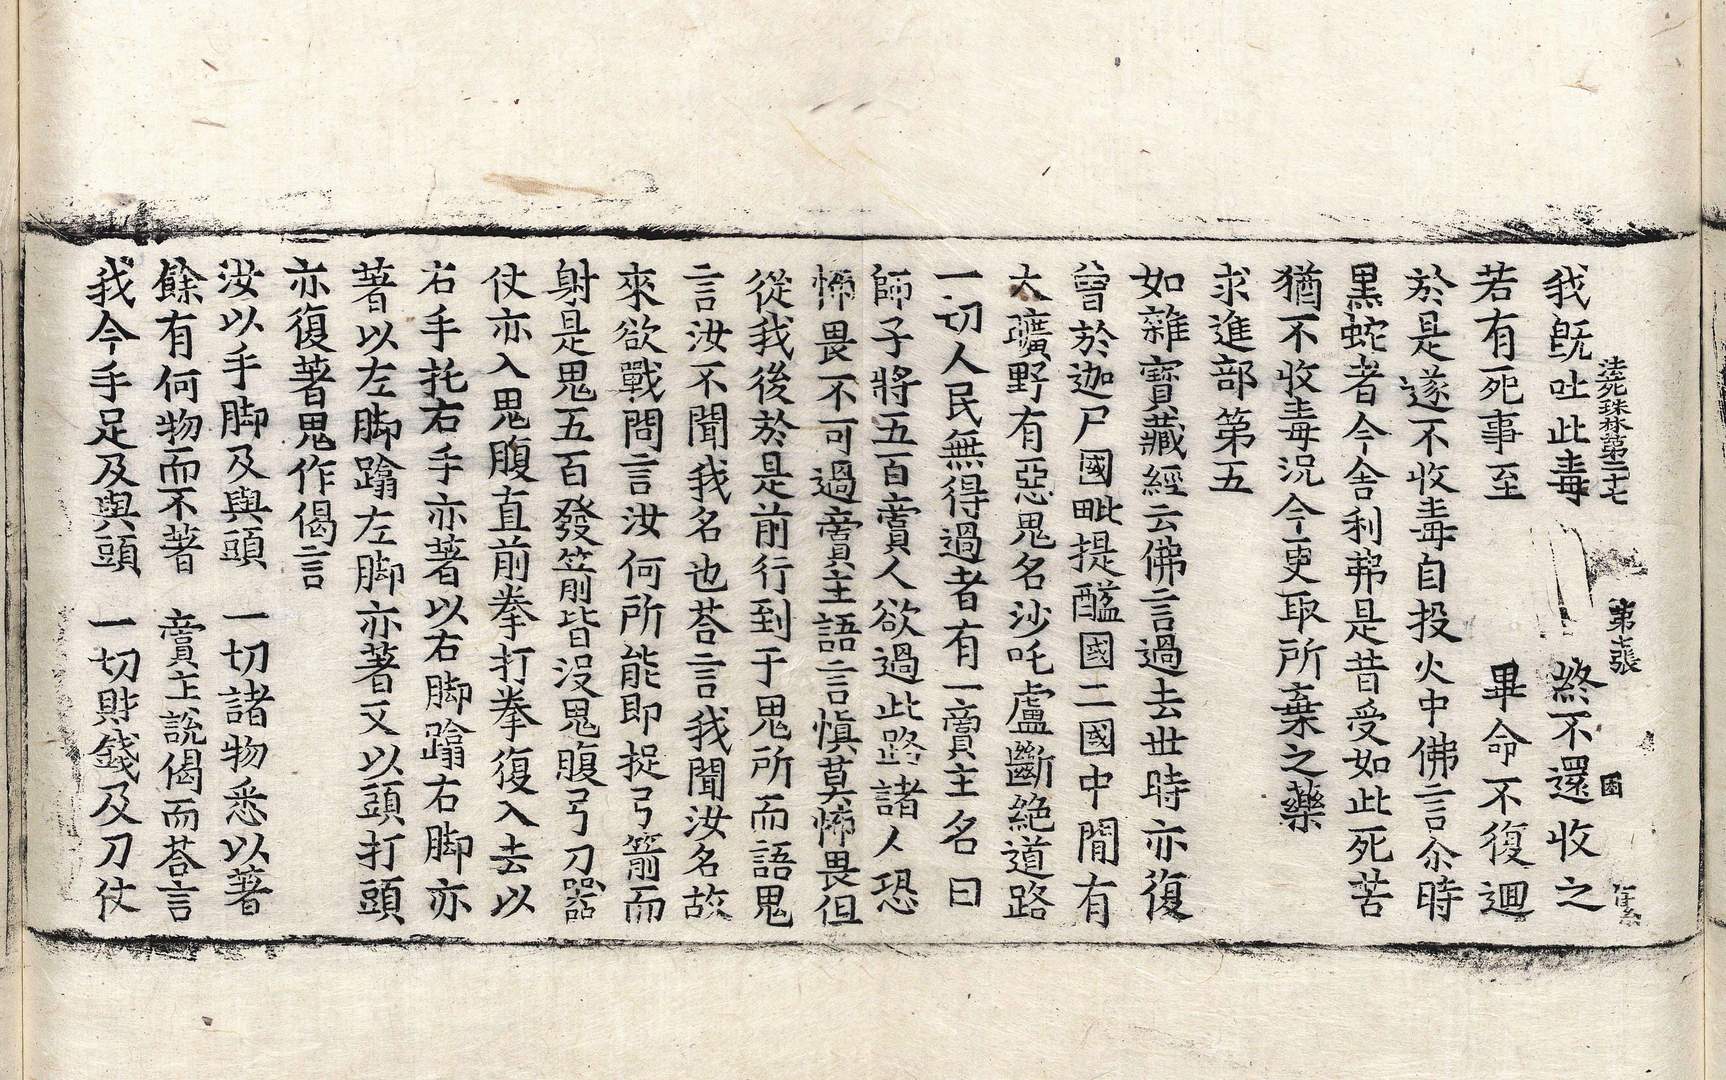 法苑珠林第二十七 第七張 圖
我旣吐此毒 終不還收之
若有死事至 畢命不復迴
於是遂不收毒自投火中佛言尒時
黑蛇者今舍利弗是昔受如此死苦
猶不收毒況今更取所棄之藥
求進部第五
如雜寶藏經云佛言過去世時亦復
曾於迦尸國毗提醯國二國中閒有
大曠野有惡鬼名沙吒盧斷絶道路
一切人民無得過者有一賣主名曰
師子將五百賣人欲過此路諸人恐
怖畏不可過賣主語言愼莫怖畏但
從我後於是前行到于鬼所而語鬼
言汝不聞我名也荅言我聞汝名故
來欲戰問言汝何所能即捉弓箭而
射是鬼五百發箭皆沒鬼腹弓刀器
仗亦入鬼腹直前拳打拳復入去以
右手托右手亦著以右脚蹹右脚亦
著以左脚蹹左脚亦著又以頭打頭
亦復著鬼作偈言
汝以手脚及與頭 一切諸物悉以著
餘有何物而不著 賣主說偈而荅言
我今手足及與頭 一切財錢及刀仗